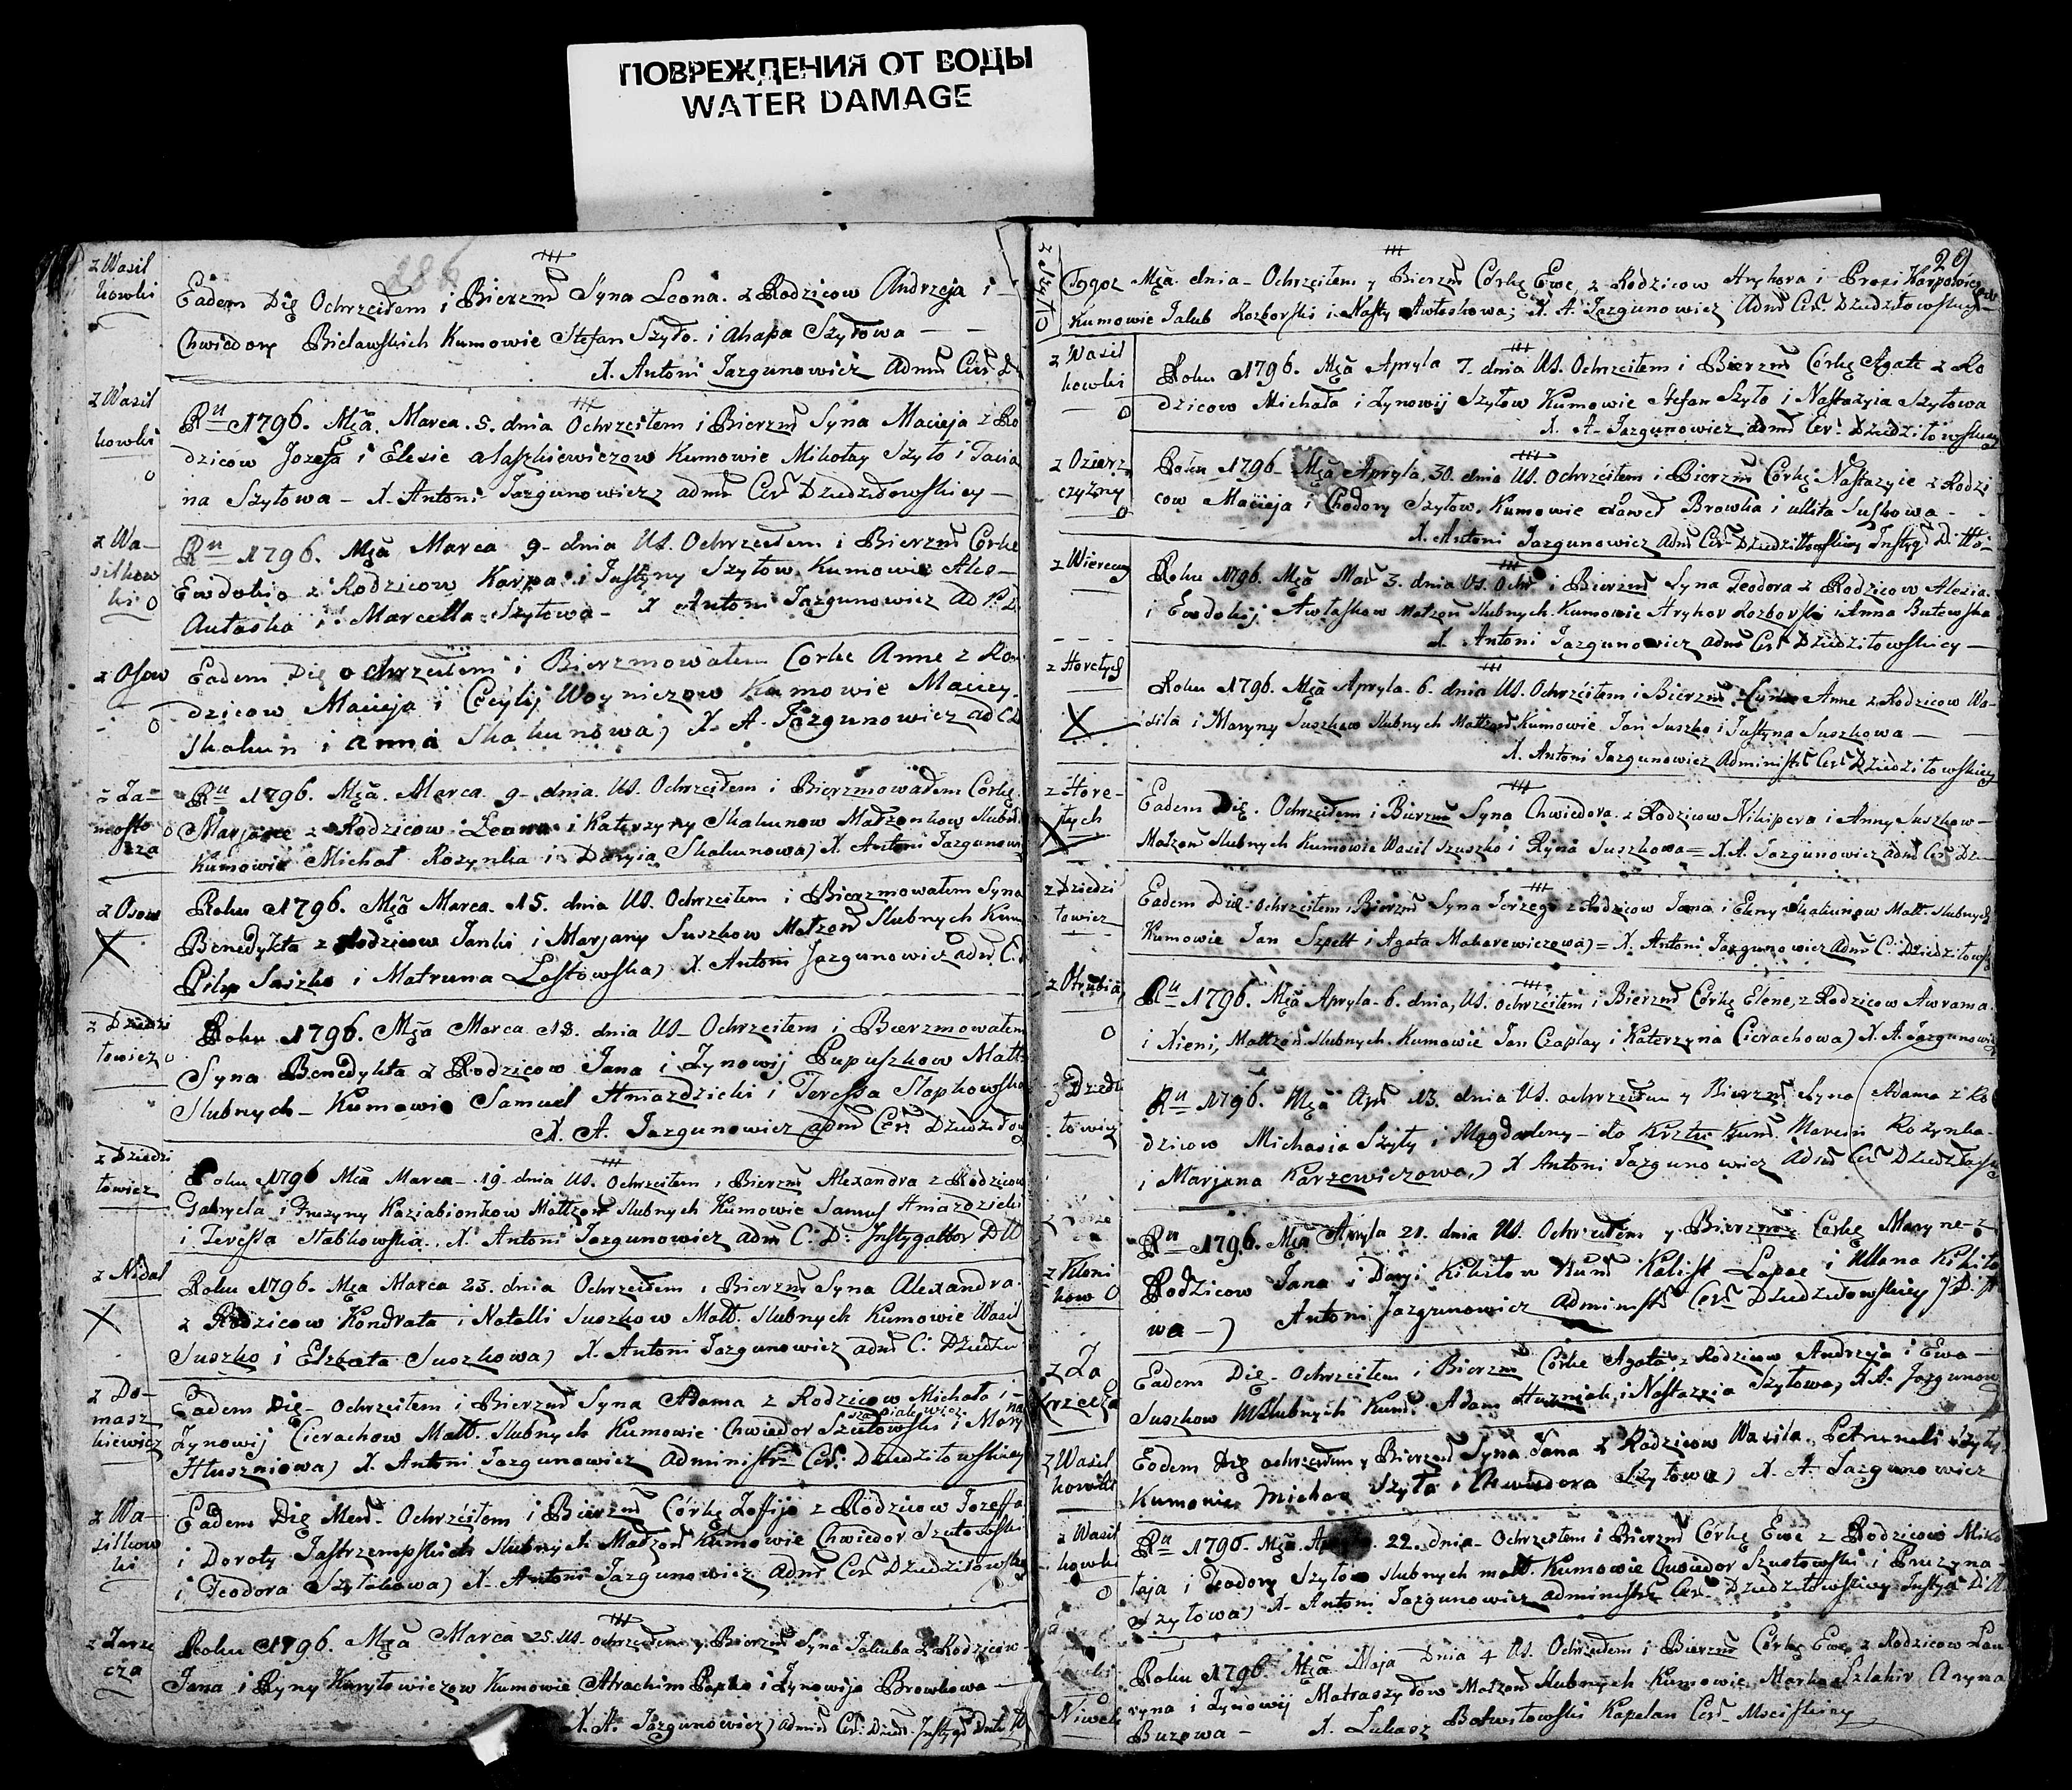 ПОВРЕЖДЕНИЯ ОТ ВОДЫ
WATER DAMAGE
286
z Wasil
kowki
Eadem Die Ochrzciłem i Bierzm Syna Leona z Rodzicow Andrzeja i
Chwiedory Bielawskich Kumowie Stefan Szyło i Ahapa Szyłowa
X. Antoni Jazgunowicz Adm Cer D
z Wasil
kowki
Ru 1796. Mca Marca. 5. dnia Ochrzciłem i Bierzm Syna Macieja z Ro
dzicow Jozefa i Elesie Kumowie Mikołay Szyło i Tacia
na Szyłowa – X. Antoni Jazgunowicz adm Cer Dziedziłowskiey –
z Wa–
silkow
ki
Ru 1796. Mca Marca 9 dnia Us. Ochrzciłem i Bierzm Corke
Ewdokio z Rodzicow Karpa i Justyny Szyłow Kumowie Alex–
Autaska i Marcella Szyłowa – X Antoni Jazgunowicz Ad
z Osow
Eadem Die ochrzciłem i Bierzmowałem Corke Anne z Ro
dzicow Macieja i Cecylij Woyniczow Kumowie Maciey
Skakun i Anna Skakunowa) X. A. Jazgunowicz ad C D
z Za–
mosto
cza
Ru 1796. Mca. Marca 9 dnia. Us. Ochrzciłem i Bierzmowałem Corkę
Marjanne z Rodzicow Leona i Katerzyny Skakunow Małżonkow Slubn
Kumowie Michał Rozynka i Daryia Skakunowa) X. Antoni Jazgunow
z Osow
Roku 1796. Mca Marca. 15. dnia Us. Ochrzciłem i Bierzmowałem Syna
Benedykta z Rodzicow Janki i Marjany Suszkow Małżon Slubnych Kum
Pilip Suszko i Matruna Lostowska) X. Antoni Jazgunowicz adm C. D
z Dziedzi
łowicz
Roku 1796. Mca Marca 18. dnia Us – Ochrzciłem i Bierzmowałem
Syna Benedykta z Rodzicow Jana i Zynowij Pupuszkow Małż
Slubnych – Kumowie Samuel Hniazdzicki i Teressa Slapkowska
X. A. Jazgunowicz adm Cer Dziedziłow
z Dziedzi
łowicz
Roku 1796 Mca Marca – 19 – dnia Us. Ochrzciłem i Bierzm Alexandra z Rodzicow
Gabryela i Pruzyny Kaziabionkow Małżon Slubnych Kumowie Samuel Hniazdzicki
i Teressa Slabkowska. X. Antoni Jazgunowicz adm C. D. Instygattor DW
z Nidal
Roku 1796. Mca Marca 23. dnia Ochrzciłem i Bierzm Syna Alexandra
z Rodzicow Kondrata i Natalli Suszkow Małż. Slubnych Kumowie Wasil
Suszko i Elzbeta Suszkowa) X. Antoni Jazgunowicz adm C. Dziedzi
z Do–
masz
kiewicz
Eadem Die – Ochrzciłem i Bierzm Syna Adama z Rodzicow Michała i
Zynowij Cierachow Małż. Slubnych Kumowie Chwiedor Szutowski i Mary
Hluszniowa) X. Antoni Jazgunowicz Administr Cer. Dziedziłowskiey
z Wa–
silkow
ki
Eadem Die Men. Ochrzciłem i Bierzm Córkę Zofijo z Rodzicow Jozeffa
i Doroty Jastrzempskich Slubnych Małżon Kumowie Chwiedor Szutowski
i Teodora Szyłokowa) X. Antoni Jazgunowicz Adm Cer Dziedziłowskiey
z Zarze
cza
Roku 1796. Mca Marca 25. Us. ochrzciłem y Bierzm Syna Jakuba z Rodzicow
Jana i Ryny Karytowiczow Kumowie Atrachim Popko i Zynowija Browkowa –
X. A. Jazgunowicz) Admin Cer. Dzied. Instyg
29
z Szyło
Tegoz Mca. dnia – Ochrzciłem y Bierzm Córkę Ewe, z Rodzicow Hryhora i Prosi Karpowicz
Kumowie Jakub Rozborski i Nasty Awłaskowa; X. A. Jazgunowicz Adm Cer. Dziedziłowskiey
z Wasil
kowki
Roku 1796. Mca Apryla 7. dnia Us. Ochrzciłem i Bierzm Córkę Agate z Ro
dzicow Michała i Zynowij Szyłow Kumowie Stefan Szyło i Nastazyia Szyłowa
X. A. Jazgunowicz adm Cer. Dziedziłowskiey
z Ozierz
czyzny
Roku 1796 – Mca Apryla, 30. dnia Us. Ochrzciłem i Bierzm Córkę Nastazyie z Rodzi
cow Macieja i Chodory Szyłow. Kumowie Paweł Browka i Ullita Suszkowa –
X. Antoni Jazgunowicz Adm Cer Dziedziłłowskiey Instyg
z Wiereny
Roku 1796. Mca 3. dnia Us. Ochr. i Bierzm Syna Teodora z Rodzicow Alexia.
i Ewdokij Awłaskow małżon Slubnych. Kumowie Hryhor Rozborski i Anna Butowska
X. Antoni Jazgunowicz adm Cer Dziedziłowskiey –
z Horełych
Roku 1796. Mca Apryla. 6. dnia Us. Ochrzciłem i Bierzm. Anne z Rodzicow Wa–
sila i Maryny Suszkow Slubnych Małżon Kumowie Jan Suszko i Justyna Suszkowa –
X. Antoni Jazgunowicz Administr Cer Dziedziłowskiey
z Hore–
łych
Eadem Die. Ochrzciłem i Bierzm Syna Chwiedora z Rodzicow Nikipera i Anny Suszkow –
Małżon Slubnych Kumowie Wasil Szuszko i Ryna Suszkowa = X. A. Jazgunowicz adm Cer Dz
z Dziedzi
łowicz
Eadem Die ochrzciłem i Bierzm Syna Jerzego z Rodzicow Jana i Eleny Skakunow Małż. Slubnych
Kumowie Jan Szpett i Agata Makarewiczowa) = X. Antoni Jazgunowicz Adm C. Dziedziłowsk
z Otrubia
Ru 1796. Mca Apryla 6. dnia, Us. ochrzciłem i Bierzm Córkę Elene, z Rodzicow Awrama.
i Xieni, Małżon. Slubnych. Kumowie Jan Czaplay i Katerzyna Cierachowa) X. A. Jazgunowicz
z Dziedzi
łowicz
Ru 1796. Mca Apr 13. dnia Us. ochrzciłem y Bierzm Syna Adama z Ro
dzicow Michasia Szyły i Magdaleny – do Krztu Kum. Marcin Rozynka
i Marjana Karzewiczowa,) X Antoni Jazgunowicz Adm Cer Dziedziłows
z Kloni
kow
Ru 1796. Mca Apryla 21. dnia Us. Ochrzciłem y Bierzm Corkę Maryne – z
Rodzicow Jana i Daryi Kikiłow Kum Kalist Łapac i Ullana Kikiło
wa –) Antoni Jazgunowicz Administr Cer Dziedziłowskiey
z Za
krzecza
Eadem Die – Ochrzciłem i Bierzm Córkę Agata z Rodzicow Andrzyia i Ewa –
Suszkow Slubnych Kum. Adam Huzniak, i Nastazzia Szyłowa, X A. Jazgunow
z Wasil
kowki
Eodem Die ochrzciłem y Bierzm Syna Jana z Rodzicow Wasila, Petruneli Szyły
Kumowie Michał Szyła i Chwiedora Szyłowa) X. A. Jazgunowicz
z Wasil
kowki
Ru 1796. Mca 22. dnia – Ochrzciłem i Bierzm Córkę Ewe z Rodzicow Miko
łaja i Teodory Szyłow slubnych małż. Kumowie Chwiedor Szustowski i Pruzyna –
Szyłowa) X. Antoni Jazgunowicz administr Cer. Dziedziłowskiey Instyg
Niwek
Roku 1796 Mca Maja Dnia 4 Us. Ochrzciłem i Bierzm Córkę Ewe z Rodzicow Lau
ryna i Zynowij Matraszyłow Małżon Slubnych Kumowie, Marko Szlahir Aryna
Burowa – X. Łukasz Botwiłowski Kapelan Cer – Mscisskiey